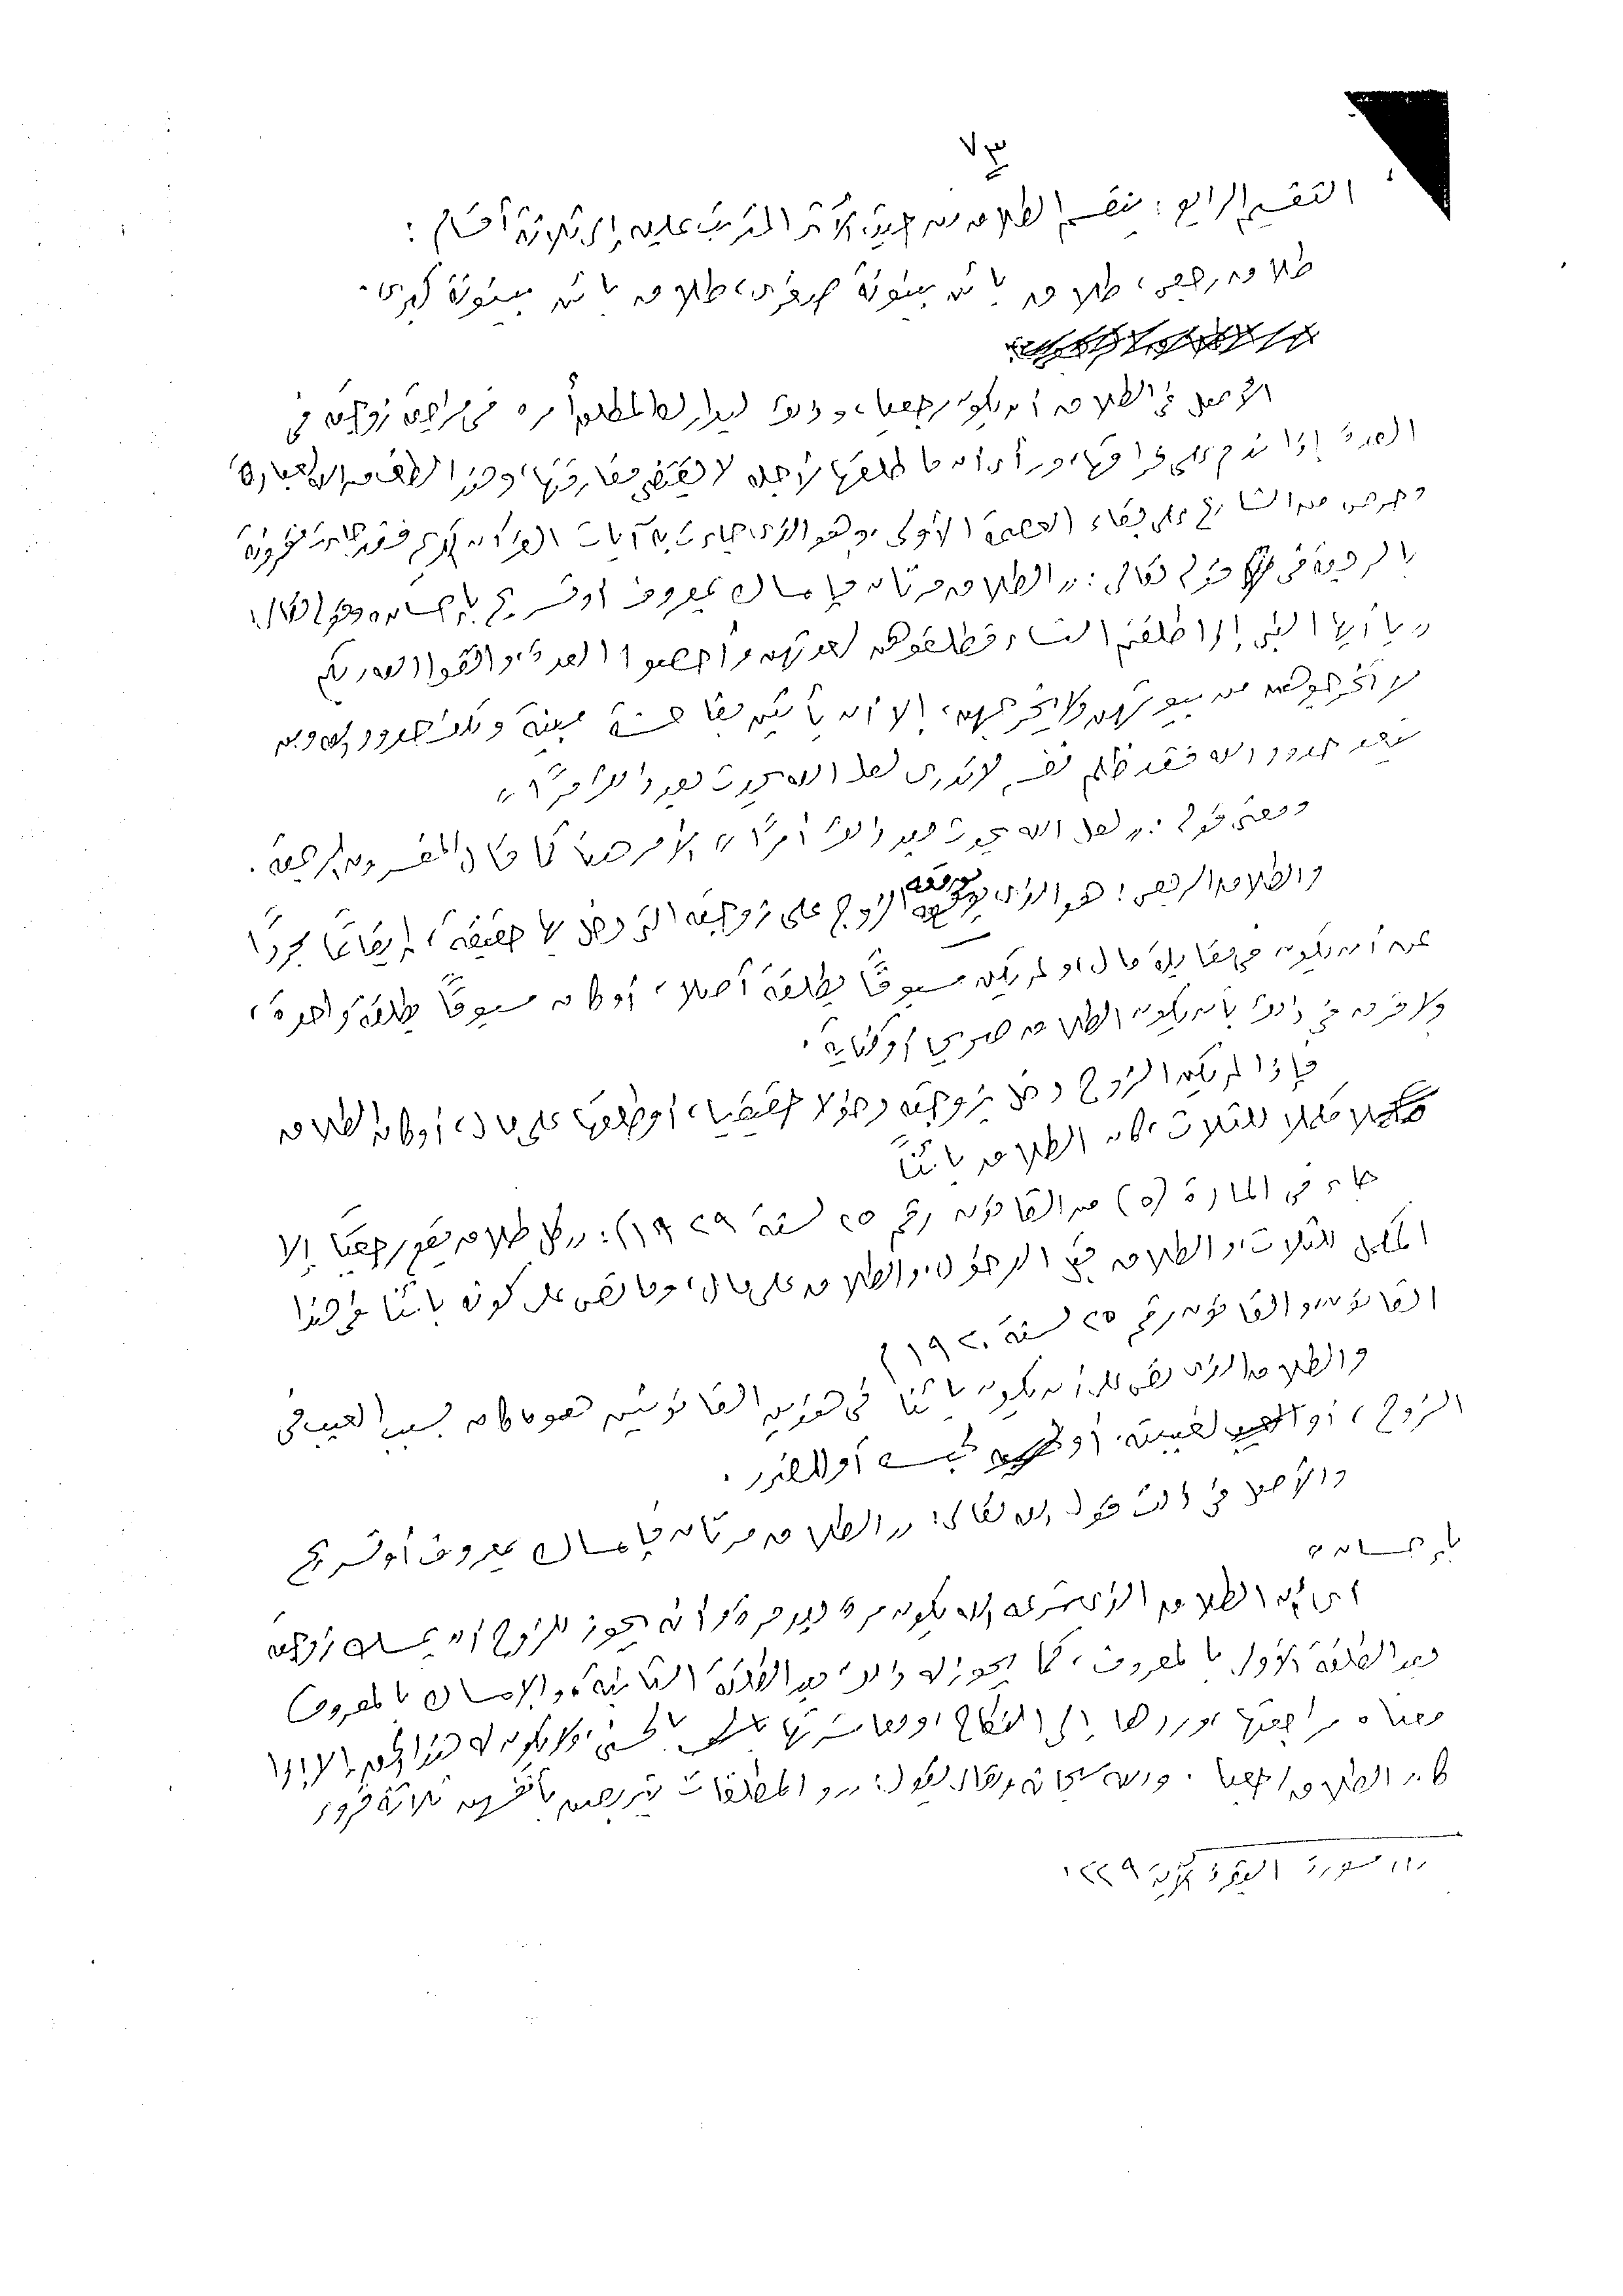 ٧٣
التقسيم الرابع: ينقسم الطلاق من حيث الأثر المترتب عليه إلى ثلاثة أقسام:
طلاق رجعى، طلاق بائن بينونة صغرى، طلاق بائن بينونة كبرى.
الأصل في الطلاق أن يكون رجعيا، وذلك ليدارك المطلق أمره فى مراجعة زوجته فى
العدة إذا ندم على فراقها، ورأى أن ما طلقها لأجله لا يقتضى مفارقتها، وهذا لطف من الله لعباده،
وحرص من الشارع على بقاء العصمة الأولى، وهو الذى جاءت به آيات القرآن الكريم فقد جاءت مقرونة
بالرجعة فى قوله تعالى: "الطلاق مرتان فإمساك بمعروف أو تسريح بإحسان" وقوله تعالى:
"يا أيها النبى إذا طلقتم النساء فطلقوهن لعدتهن وأحصوا العدة، واتقوا الله ربكم
لا تخرجوهن من بيوتهن ولا يخرجن، إلا أن يأتين بفاحشة مبينة وتلك حدود الله ومن
يتعد حدود الله فقد ظلم نفسه لا تدرى لعل الله يحدث بعد ذلك أمرًا"
ومعنى قوله: "لعل الله يحدث بعد ذلك أمرًا" الأمر هنا كما قال المفسرون الرجعة.
والطلاق الرجعى: هو الذى يوقعه الزوج على زوجته التى دخل بها حقيقة، إيقاعًا مجردًا
عن أن يكون فى مقابلة مال، ولم يكن مسبوقًا بطلقة أصلا، أو كان مسبوقًا بطلقة واحدة،
ولا فرق فى ذلك بأن يكون الطلاق صريحا أو كناية.
فإذا لم يكن الزوج دخل بزوجته دخولا حقيقيا، أو طلقها على مال، أو كان الطلاق
مكملا للثلاث، كان الطلاق بائنًا
جاء فى المادة (٥) من القانون رقم ٢٥ لسنة ١٩٢٩): "كل طلاق يقع رجعيًا إلا
المكمل للثلاث، والطلاق قبل الدخول، والطلاق على مال، وما نص على كونه بائنًا فى هذا
القانون، والقانون رقم ٢٥ لسنة ١٩٢٠)
والطلاق الذى نص على أن يكون بائنًا فى هذين القانونين هو ما كان بسبب العيب فى
الزوج، أو لغيبته. أو لحبسه أو للضرر.
والأصل فى ذلك قول الله تعالى: "الطلاق مرتان فإمساك بمعروف أو تسريح
بإحسان"
أى أن الطلاق الذى شرعه الله يكون مرة بعد مرة، وأنه يجوز للزوج أن يمسك زوجته
بعد الطلقة الأولى بالمعروف، كما يجوز له ذلك بعد الطلقة الثانية، والإمساك بالمعروف
معناه مراجعتها، وردها إلى النكاح، ومعاشرتها بالحسنى، ولا يكون له هذا الحق إلا إذا
كان الطلاق رجعيا. والله سبحانه وتعالى يقول: "والمطلقات يتربصن بأنفسهن ثلاثة قروء
(١) سورة البقرة الآية ٢٢٩.